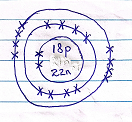 18p
22n